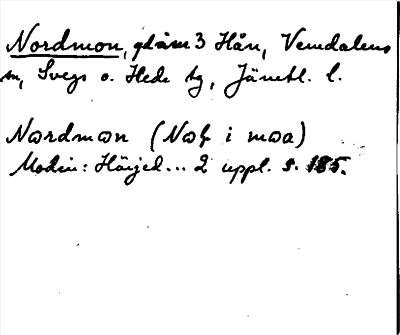 Nordmon, gd i nr 3 Hån, Vemdalens
sn, Svegs o. Hede tg, Jämtl. l.
Nordmon (Nof i moa)
Modin: Härjed... 2 uppl. s. 185.